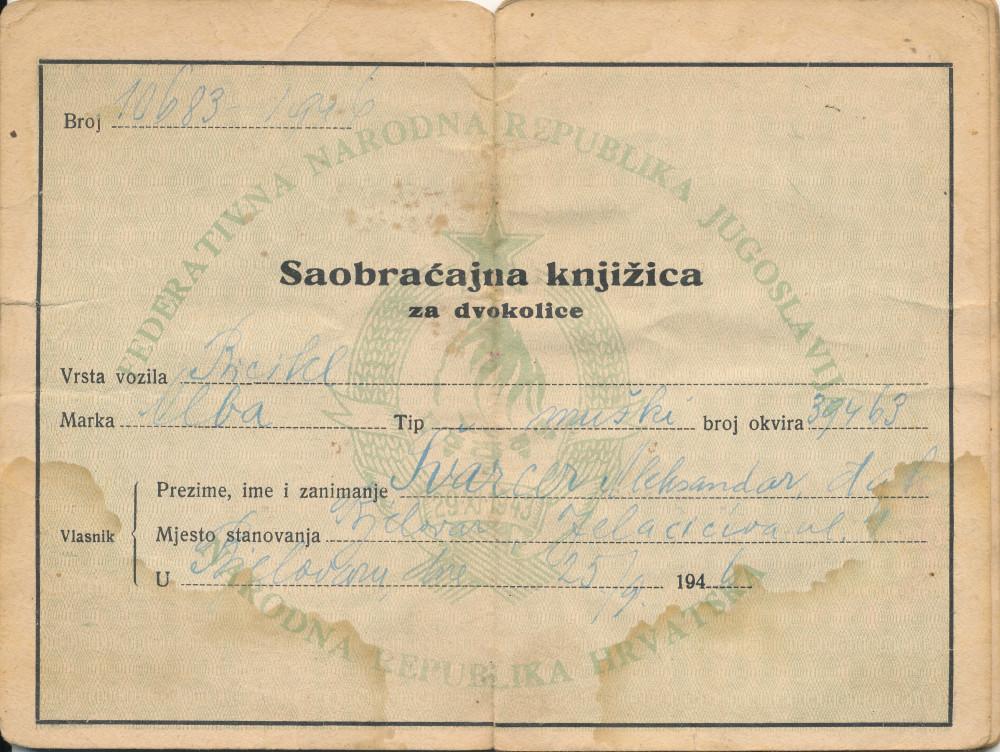 Broj 10683-1946
FEDERATIVNA NARODNA REPUBLIKA JUGOSLAVIJA
Saobraćajna knjižica
za dvokolice
Vrsta vozila Bicikl
Marka Alba Tip muški broj okvira 39463
Prezime, ime i zanimanje Švarcer Aleksandar,
Vlasnik
Mjesto stanovanja Bjelovar, Jelačićeva ul.
29.XI.1943
U Bjelovaru, dne 25/9. 1946
NARODNA REPUBLIKA HRVATSKA